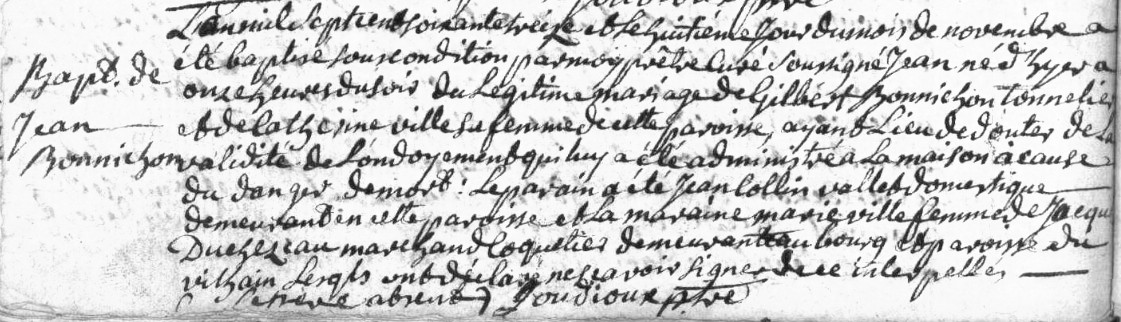 L'an mil sept cent soixante treize et le huitième jour du mois de novembre a
Bapt. de
été baptisé sous condition par moy prêtre curé soussigné Jean né d'hyer a
onze heures du soir du Legitime mariage de Gilbert Bonnichon tonnelier
Jean
et de Catherine ville sa femme de cette paroisse, ayant Lieu de douter de la
Bonnichon
validité de L'ondoyement qui luy a été administré a La maison a cause
du danger de mort : Le parain a été Jean Collin vallet domestique
demeurant en cette paroisse et La maraine marie ville femme de Jacque
Duchezeau marchand Coquetier demeurant au bourg et paroisse du
vilhain Lesqls ont déclaré ne scavoir signer de ce interpellés
absent
ptre